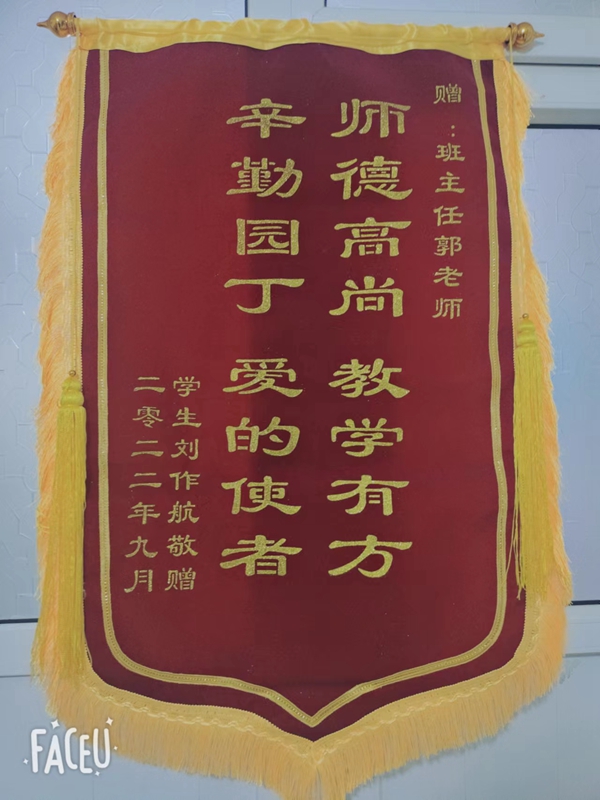 赠：班主任郭老师
师德高尚 教学有方
辛勤园丁 爱的使者
学生刘作航敬赠
二零二二年九月
FACEU